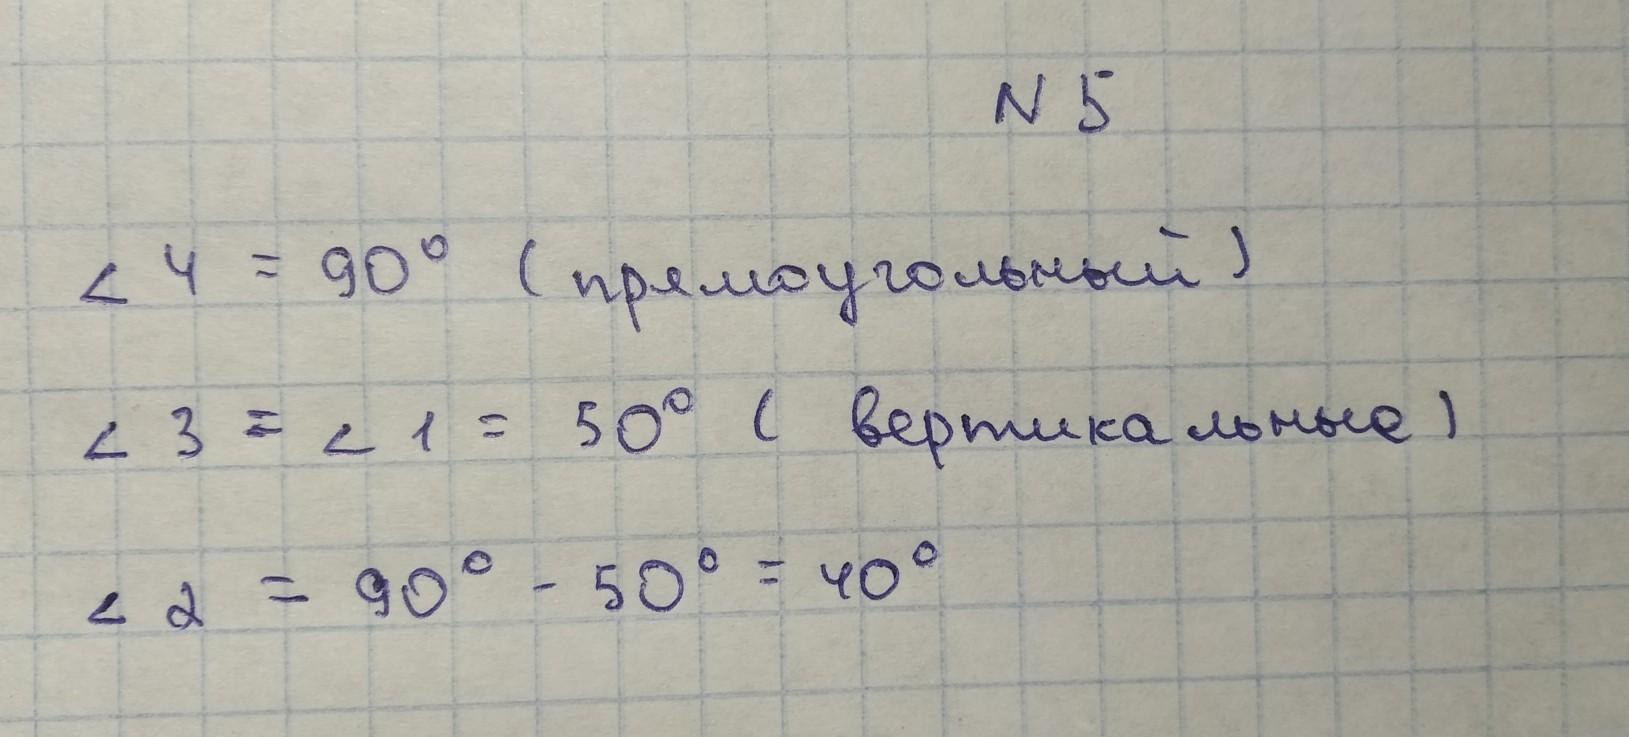 N 5
∠ 4 = 90° (прямоугольный)
∠ 3 = ∠ 1 = 50° ( вертикальные)
∠ 2 = 90° - 50° = 40°